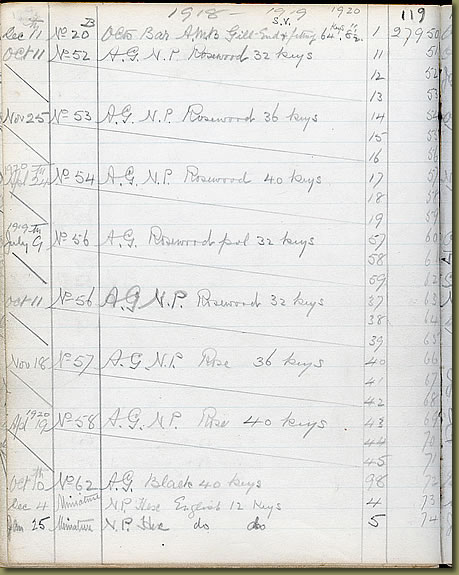 1918- 1919 1920 119
B S.V.
Dec 11 No 20 Oct. Bar 1 27950
Oct 11 No 52 A.G. N.P. Rosewood 32 keys 11 51
12 52
13 53
Nov 25 No 53 A.G. N.P. Rosewood 36 keys 14 54
15 55
16 56
1920
Apl No 54 A.G. N.P. Rosewood 40 keys 17 57
18 58
19 59
1919
July 9 No 56 A.G. Rosewood pol 32 keys 57 60
58
59 62
Oct 11 No 56 A.G N.P. Rosewood 32 keys 37 63
38 64
39 65
Nov 18 No 57 A.G. N.P. Rose 36 keys 40 66
41 67
42 68
1920
Apl 19 No 58 A.G. N.P. Rose 40 keys 43 69
44 70
45 71
Oct 10th No 62 A.G. Black 40 keys 98 72
Dec 4 Miniature N.P. Hex English 12 Keys 4 73
Jan 15 Miniature N.P. Hex do do 5 74